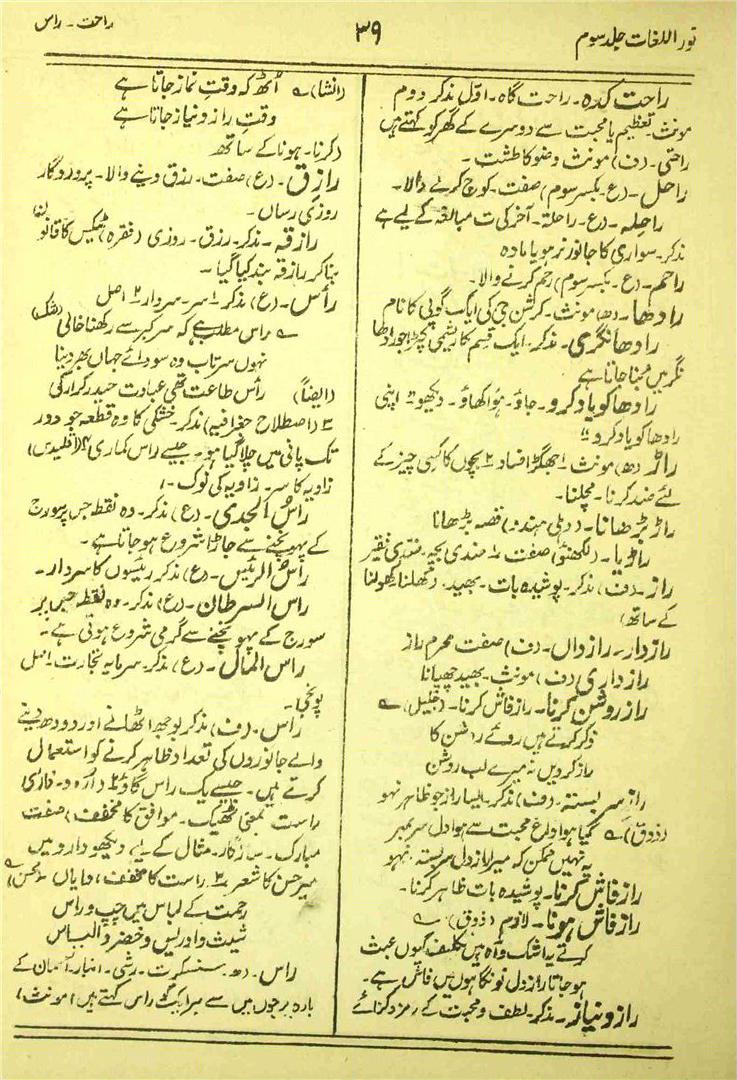 نور اللغات جلد سوم
۳۹
راحت ۔ راس
راحت کدہ۔ راحت گاہ۔ اوّل مذکر دوم
مونث۔ تعظیم یا محبت سے دوسرے کے گھر کو کہتے ہیں
راحتی۔ (ف) مونث وضو کا طشت۔
راحل۔ (ع۔ بکسر سوم) صفت۔ کوچ کرنے والا۔
راحِلہ۔ (ع۔ راحلۃ۔ آخر کی ت مبالغہ کے لیے ہے
مذکر۔ سواری کا جانور نر ہو یا مادہ
راحم۔ (ع۔ بکسر سوم) رحم کرنے والا۔
رادھا۔ (ھ) مونث۔ کرشن جی کی ایک گوپی کا نام
رادھا نگری۔ مذکر۔ ایک قسم کا ریشمی کپڑا جو رادھا
نگر میں بُنا جاتا ہے
رادھا کو یاد کرو۔ جاؤ۔ ہوا کھاؤ۔ دیکھو "اپنی
رادھا کو یاد کرو"
راڑ (ھ) مونث ۱ جھگڑا فساد ۲ بچوں کا کسی چیز کے
لئے ضد کرنا۔ مچلنا۔
راڑ بڑھانا۔ (دہلی ہندو) قصہ بڑھانا
راڑیا۔ (لکھنؤ) صفت ۱ ضدی بچہ۔ ضدی فقیر
راز۔ (ف) مذکر۔ پوشیدہ بات۔ بھید۔ (کھلنا کھولنا
کے ساتھ)
رازدار۔ رازداں۔ (ف) صفت محرم راز
رازداری (ف) مونث۔ بھید چھپانا
راز روشن کرنا۔ راز فاش کرنا۔ (جلیل) ؎
ذکر کرتے ہیں روئے روشن کا
راز کر دیں نہ میرے لب روشن
راز سربستہ۔ (ف) مذکر۔ ایسا راز جو ظاہر نہو
(ذوق) ؎ گیا ہوا داغ محبت سے ہوا دل سر بمہر
یہ نہیں ممکن کہ میرا راز دل سربستہ نہو
راز فاش کرنا۔ پوشیدہ بات ظاہر کرنا۔
راز فاش ہونا۔ لازم (ذوق) ؎
کرتے یہ اشک و آہ ہیں تکلیف کیوں عبث
ہو جاتا راز دل تو نگاہوں میں فاش ہے۔
راز و نیاز۔ مذکر۔ لطف و محبت کے رمز و کنائے
(انشا) ؎ اُٹھ کہ وقتِ نماز جاتا ہے
وقتِ راز و نیاز جاتا ہے
(کرنا۔ ہونا کے ساتھ
رازِق۔ (ع) صفت۔ رزق دینے والا۔ پروردگار
روزی رساں۔
رازقہ۔ مذکر۔ رزق۔ روزی (فقرہ) ٹیکس کا قانون
بنا کر رازقہ بند کیا گیا۔
رأس۔ (ع) مذکر ۱ سر۔ سردار ۲ اصل
؎ راس مطلب ہے کہ سرکبر سے رکھنا خالی (رشک)
نہوں سرتاب وہ سودائے جہاں بھر دینا
(ایضاً) رأس طاعت تھی عبادت حیدر کرار کی
۳ (اصطلاح جغرافیہ) مذکر۔ خشکی کا وہ قطعہ جو دور
تک پانی میں چلا گیا ہو۔ جیسے راس کماری ۴ (اقلیدس)
زاویہ کا سر۔ زاویہ کی نوک۔
راسُ الجدی۔ (ع) مذکر۔ وہ نقطہ جس پر سورج
کے پہونچنے سے جاڑا شروع ہو جاتا ہے۔
راس الرئیس۔ (ع) مذکر رئیسوں کا سردار۔
راس السرطان۔ (ع) مذکر۔ وہ نقطہ جس پر
سورج کے پہونچنے سے گرمی شروع ہوتی ہے۔
راس المال۔ (ع) مذکر۔ سرمایہ تجارت۔ اصل
پونجی۔
راس۔ (ف) مذکر بوجھ اٹھانے اور دودھ دینے
والے جانوروں کی تعداد ظاہر کرنے کو استعمال
کرتے ہیں۔ جیسے یک راس گاؤ ۲ (اردو۔ فارسی
راست بمعنی ٹھیک۔ موافق کا مخفف) صفت
مبارک۔ سازگار۔ مثال کے لیے دیکھو دارو میں
میر حسن کا شعر ۳ راست کا مخفف، دایاں (محسن) ؎
رحمت کے لباس میں چپ و راس
شیث و ادریس و خضر و الیاس
راس۔ (ھ۔ سنسکرت۔ رشی۔ انبار۔ آسمان کے
بارہ برجوں میں سے ہر ایک کو راس کہتے ہیں) مونث ۱